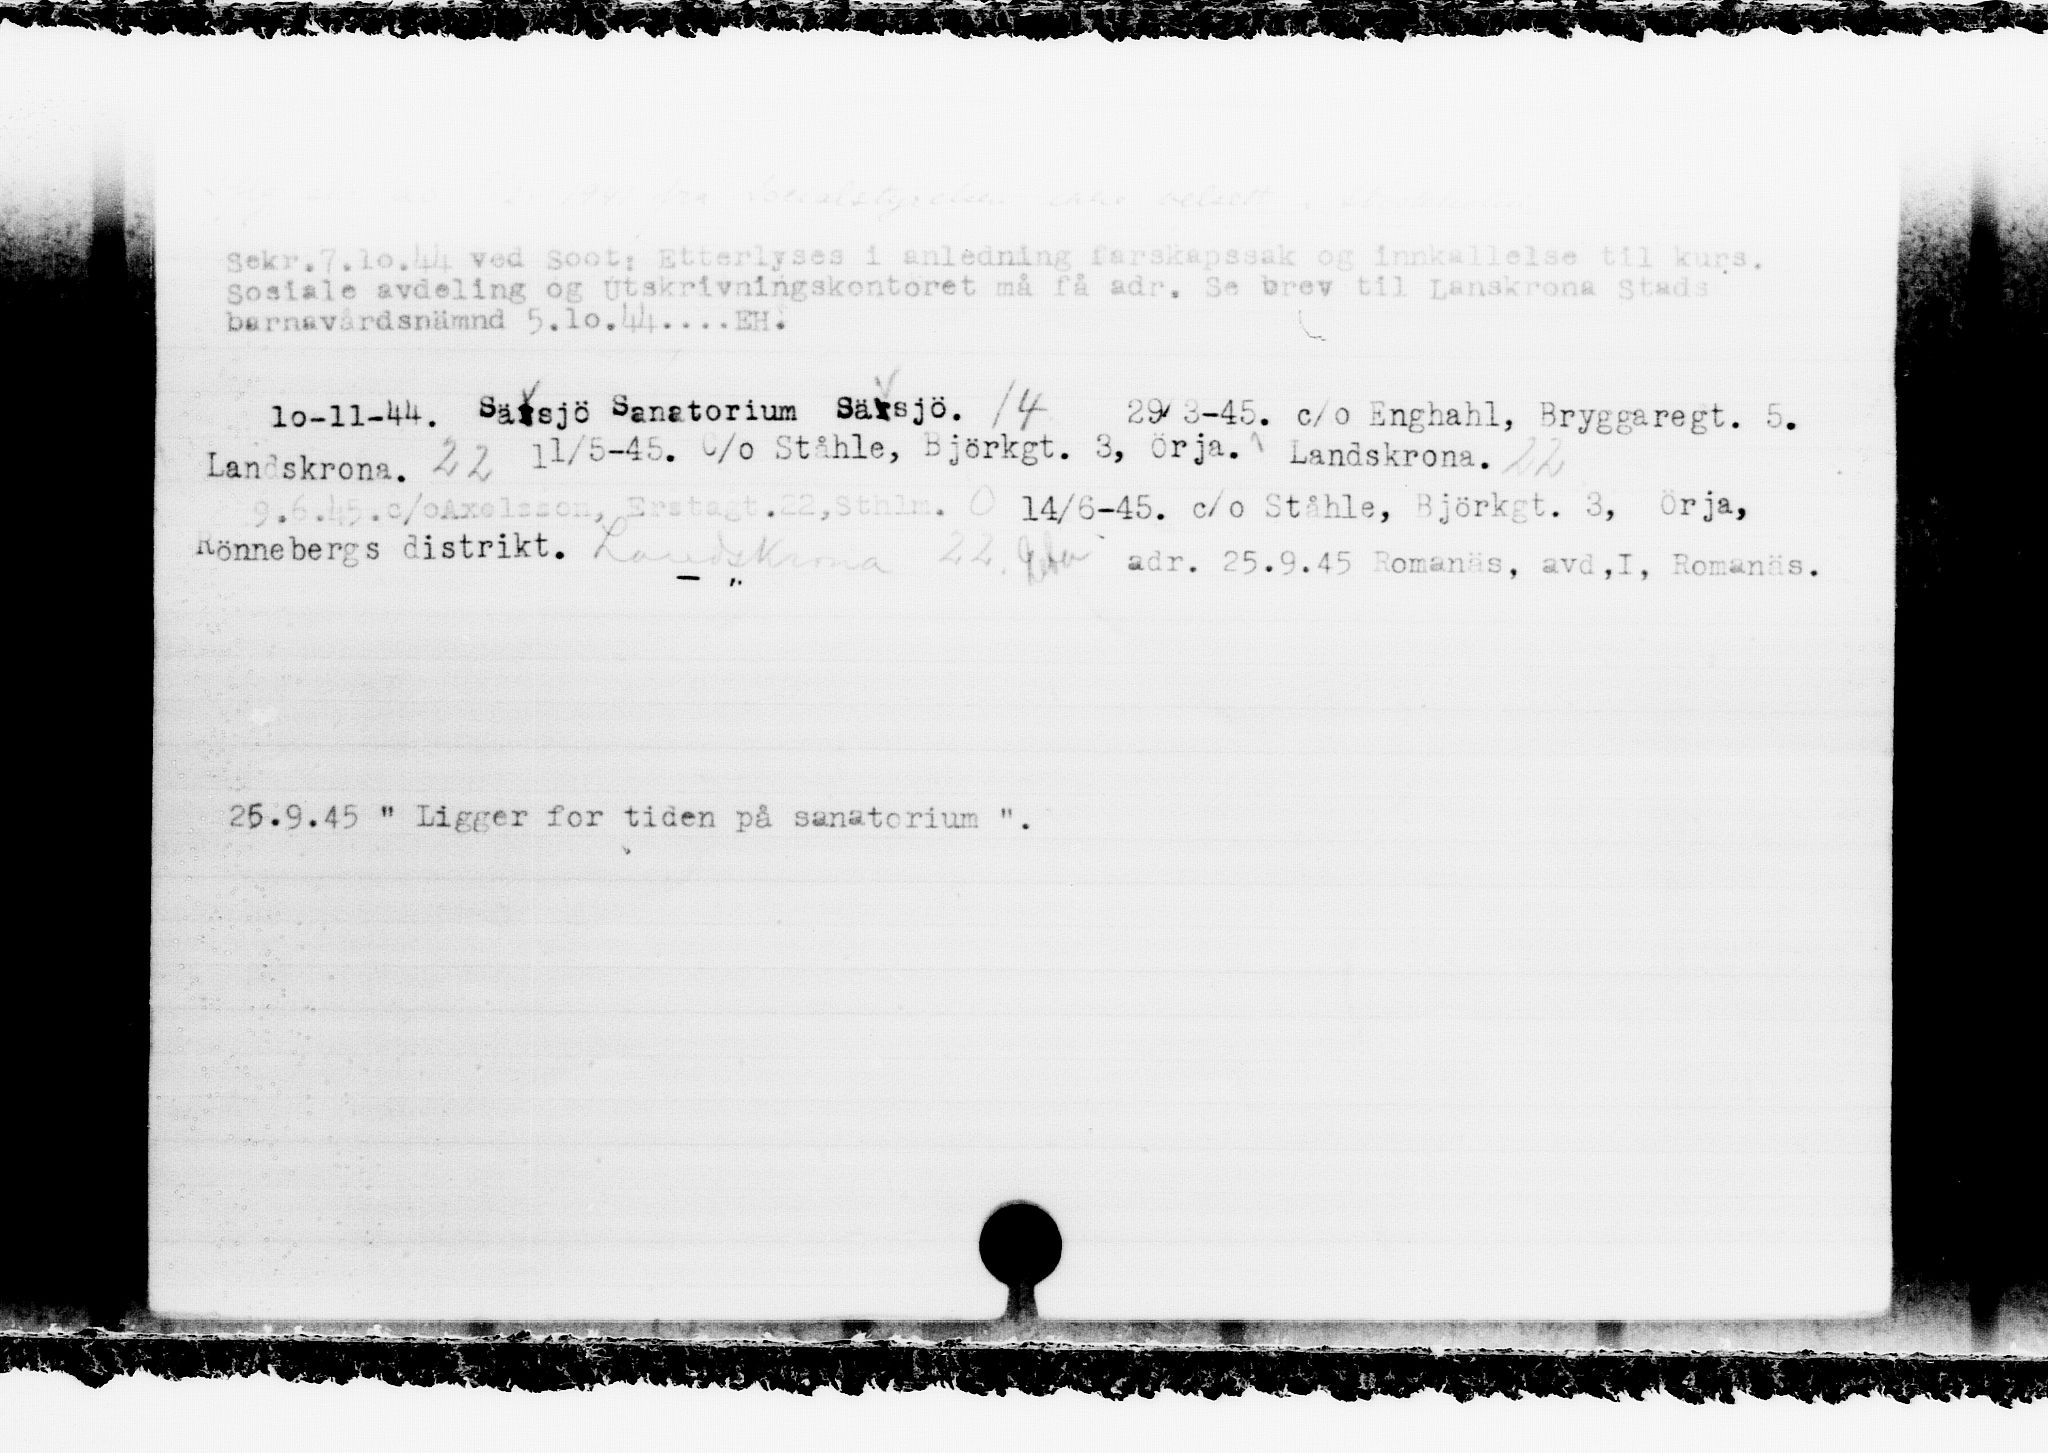 Socialstyrelsen
Sekr.7.10.44 ved Soot: Etterlyses i anledning farskapssak og innkallelse til kurs.
Sosiale avdeling og Utskrivningskontoret må få adr. Se brev til Lanskrona Stads
barnavårdsnämnd 5.10.44....EH.
10-11-44. Sävsjö Sanatorium Sävsjö. 14 29/3-45. c/o Enghahl, Bryggaregt. 5.
Landskrona. 22 11/5-45. C/o Ståhle, Björkgt. 3, Örja. Landskrona. 22
9.6.45.c/oAxelsson, Erstagt.22,Sthlm. O 14/6-45. c/o Ståhle, Björkgt. 3, Örja,
Rönnebergs distrikt. Landskrona 22. adr. 25.9.45 Romanäs, avd,I, Romanäs.
- "
25.9.45 " Ligger for tiden på sanatorium ".